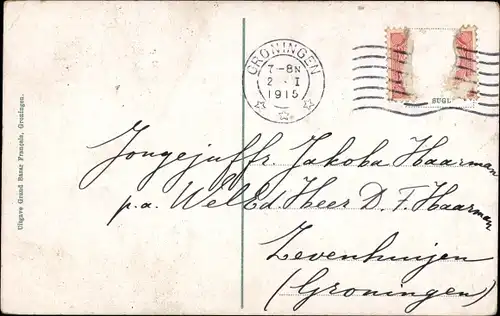 GRONINGEN
7-8N
2 . I
1915
SUGL
Jongejuffr. Jakoba Haarman
p.a. WelEd Heer D. F. Haarman
Zevenhuijen
(Groningen)
Uitgave Grand Bazar Français, Groningen.